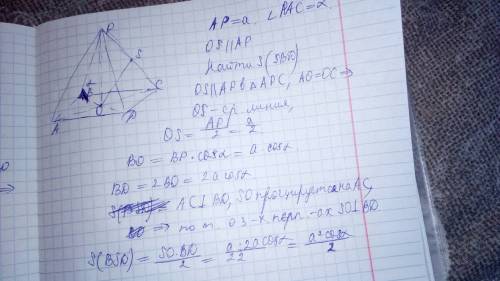 P
S
C
B
O
A
D
AP=a. ∠PAC=α
OS||AP
Найти S(SBD)
OS||AP в △APC, AO=OC ⇒
OS - ср. линия,
OS = AP/2 = a/2
BO = BP·cosα = a·cosα
BD = 2BO = 2a cosα
AC⊥BD, SO проецируется на AC,
⇒ по т. о 3-х перп-ах SO⊥BD
S(BSD) = SO·BD/2 = a·2a cosα/2·2 = a²cosα/2